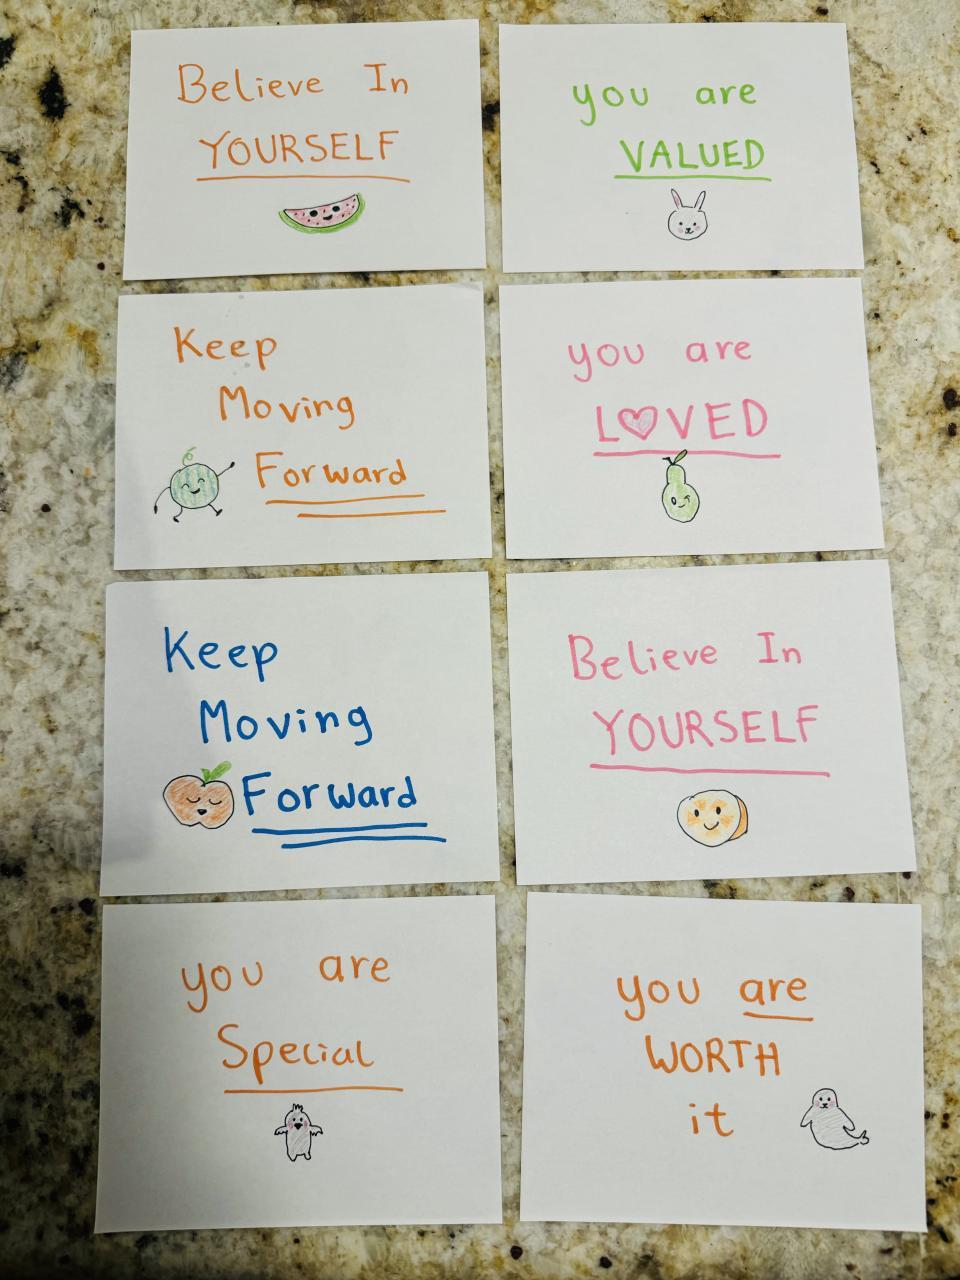 Believe In
YOURSELF
you are
VALUED
Keep
Moving
Forward
you are
LOVED
Keep
Moving
Forward
Believe In
YOURSELF
you are
Special
you are
WORTH
it